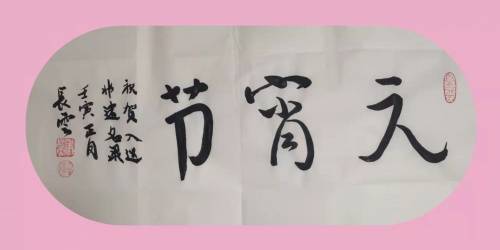 元宵节
祝贺入选
非遗名录
壬寅正月
長雲